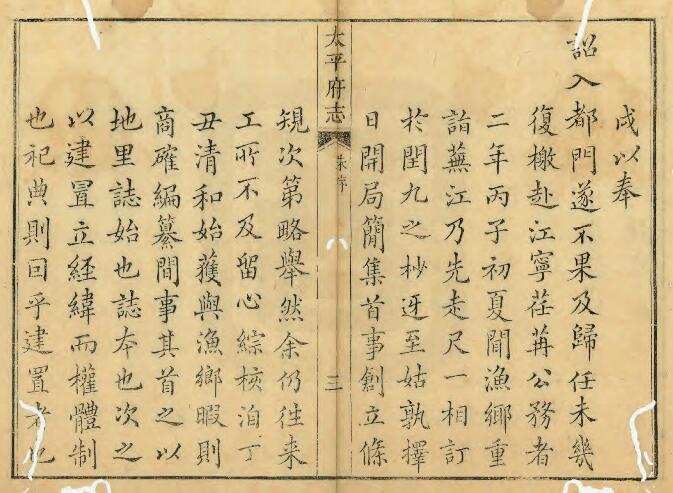 成以奉
詔入都門遂不果及歸任未幾
復檄赴江寧荏苒公務者
二年丙子初夏閒漁鄉重
詣蕪江乃先走尺一相訂
於閏九之杪迓至姑孰擇
日開局簡集首事創立條
太平府志
序
三
規次第略舉然余仍徃来
工所不及留心綜核洎丁
丑清和始獲與漁鄉暇則
商確編纂閒事其首之以
地里誌始也誌本也次之
以建置立經緯而權體制
也祀典則囙乎建置者也